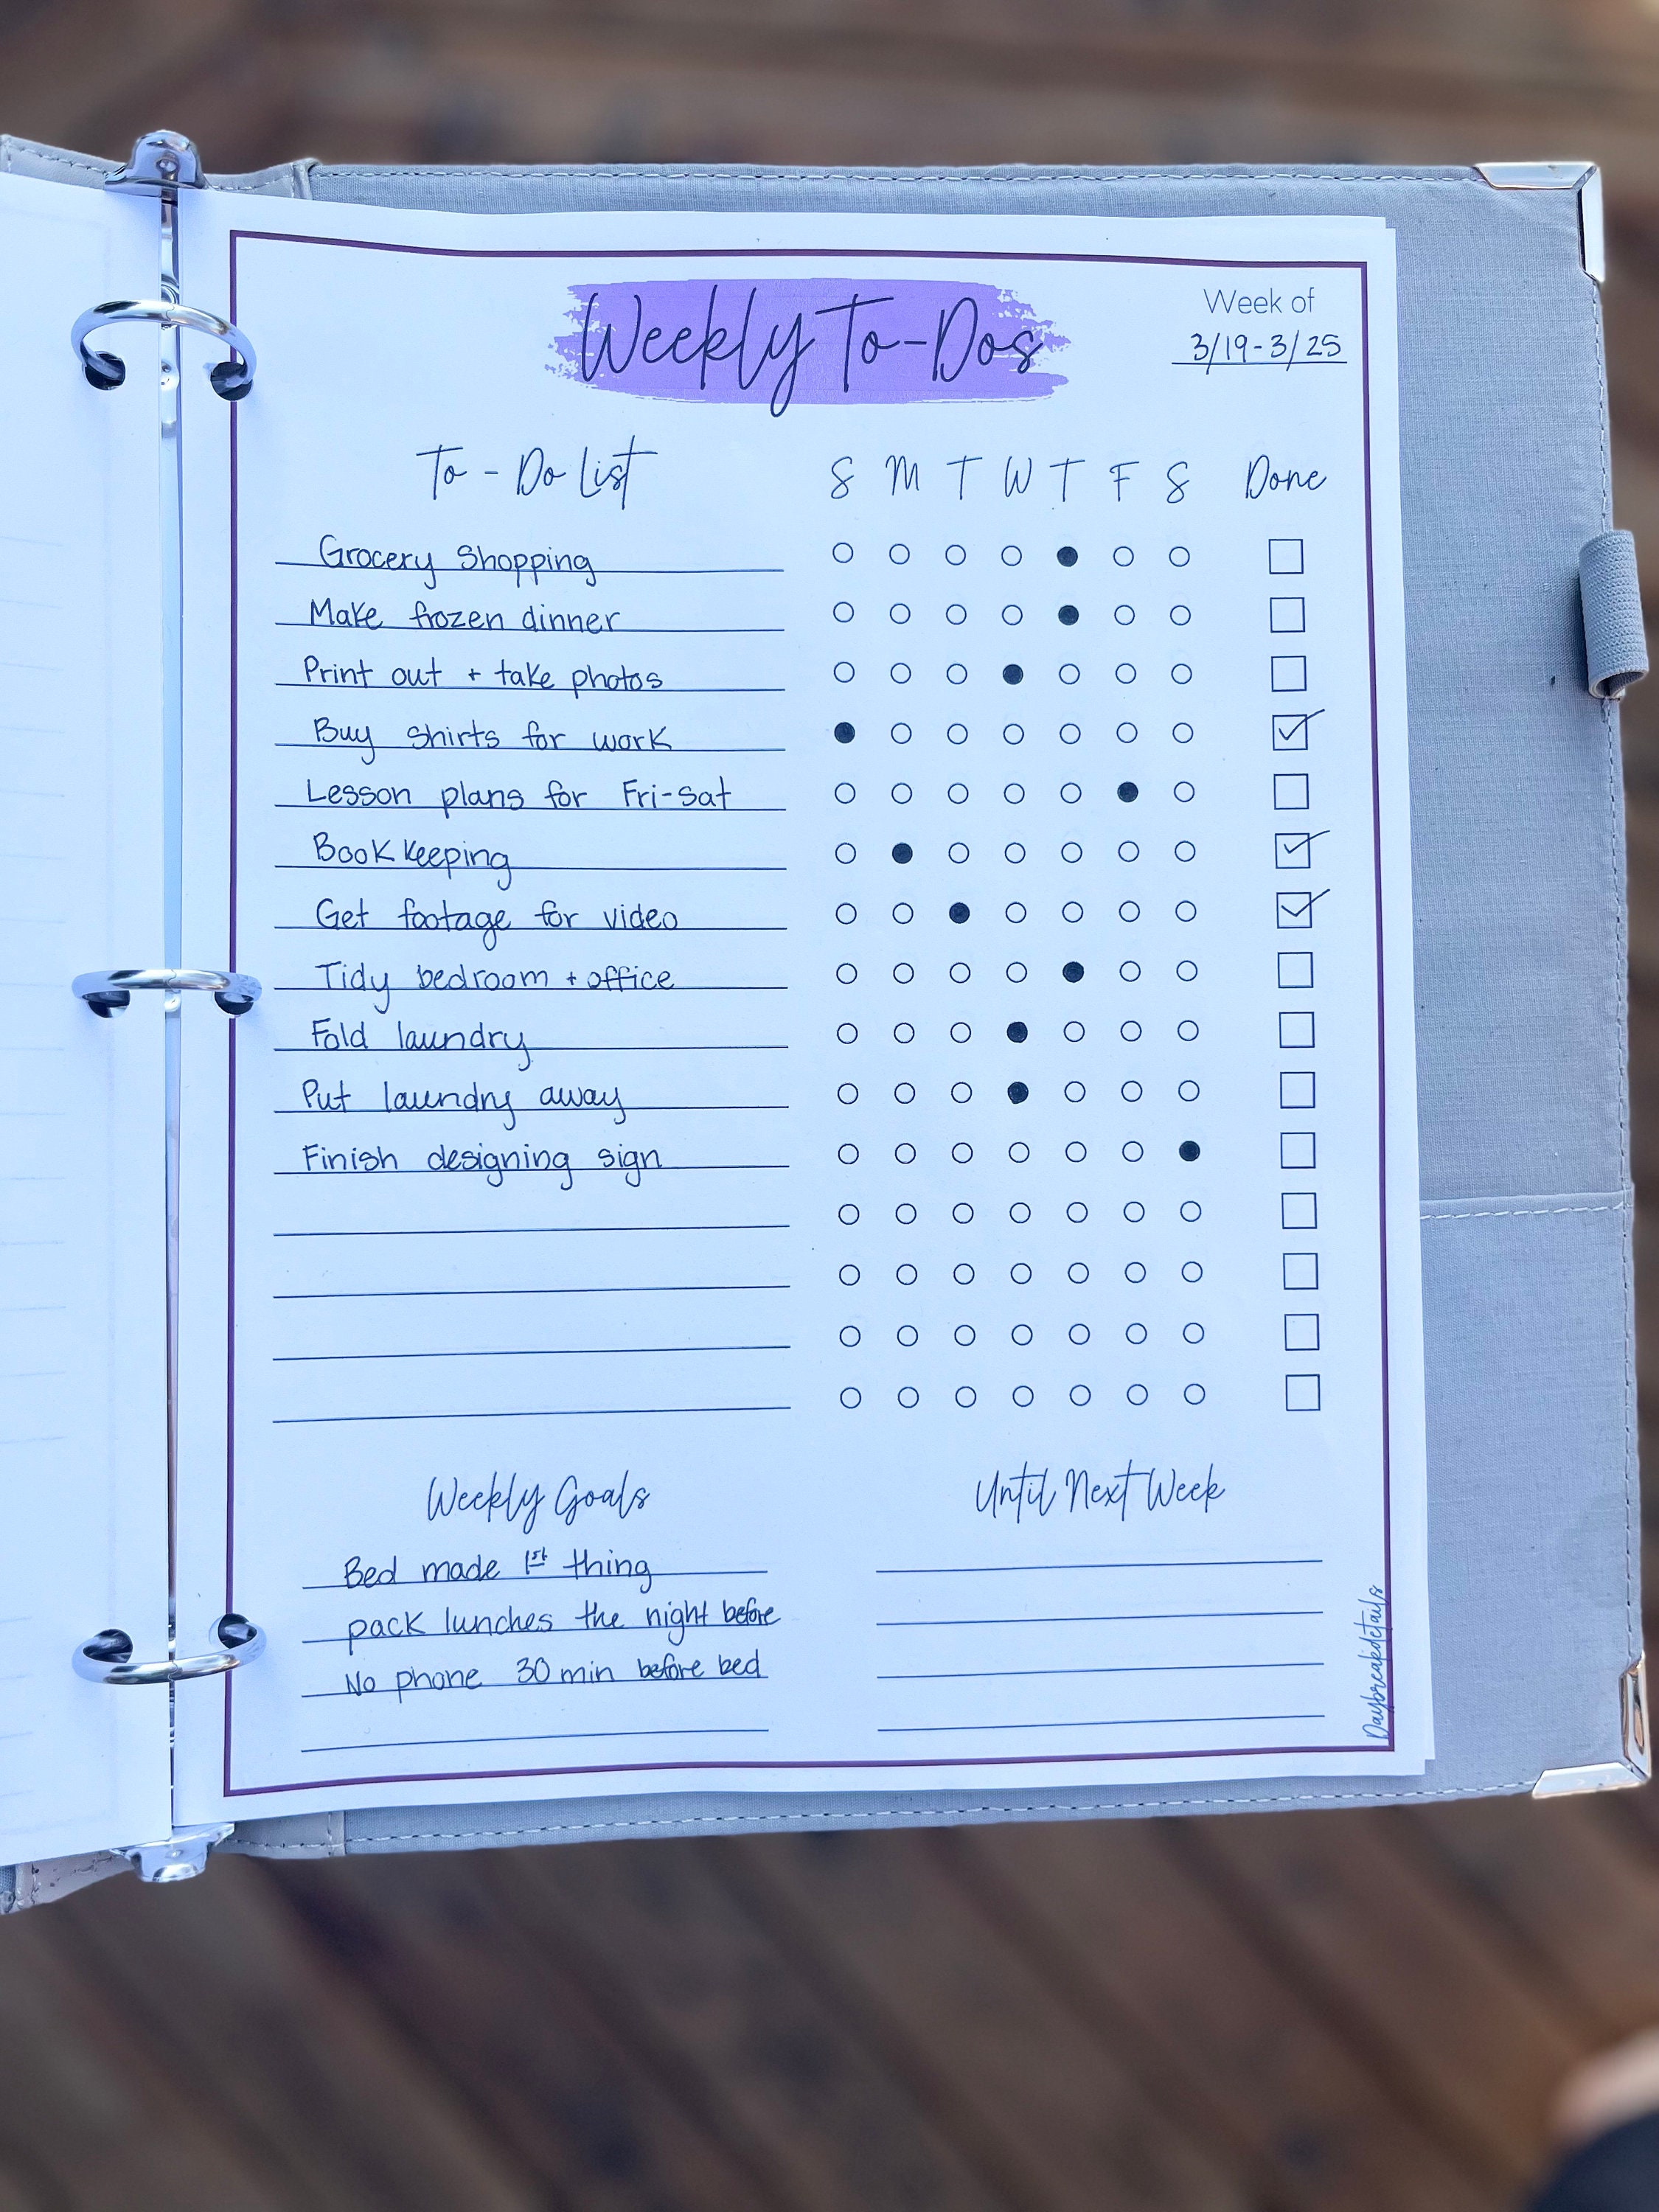 Weekly To-Dos
Week of
3/19-3/25
To - Do List S M T W T F S Done
Grocery Shopping
Make frozen dinner
Print out + take photos
Buy shirts for work
Lesson plans for Fri-Sat
Bookkeeping
Get footage for video
Tidy bedroom + office
Fold laundry
Put laundry away
Finish designing sign
Weekly Goals
Bed made 1st thing
pack lunches the night before
No phone 30 min before bed
Until Next Week
Daybreakdetails